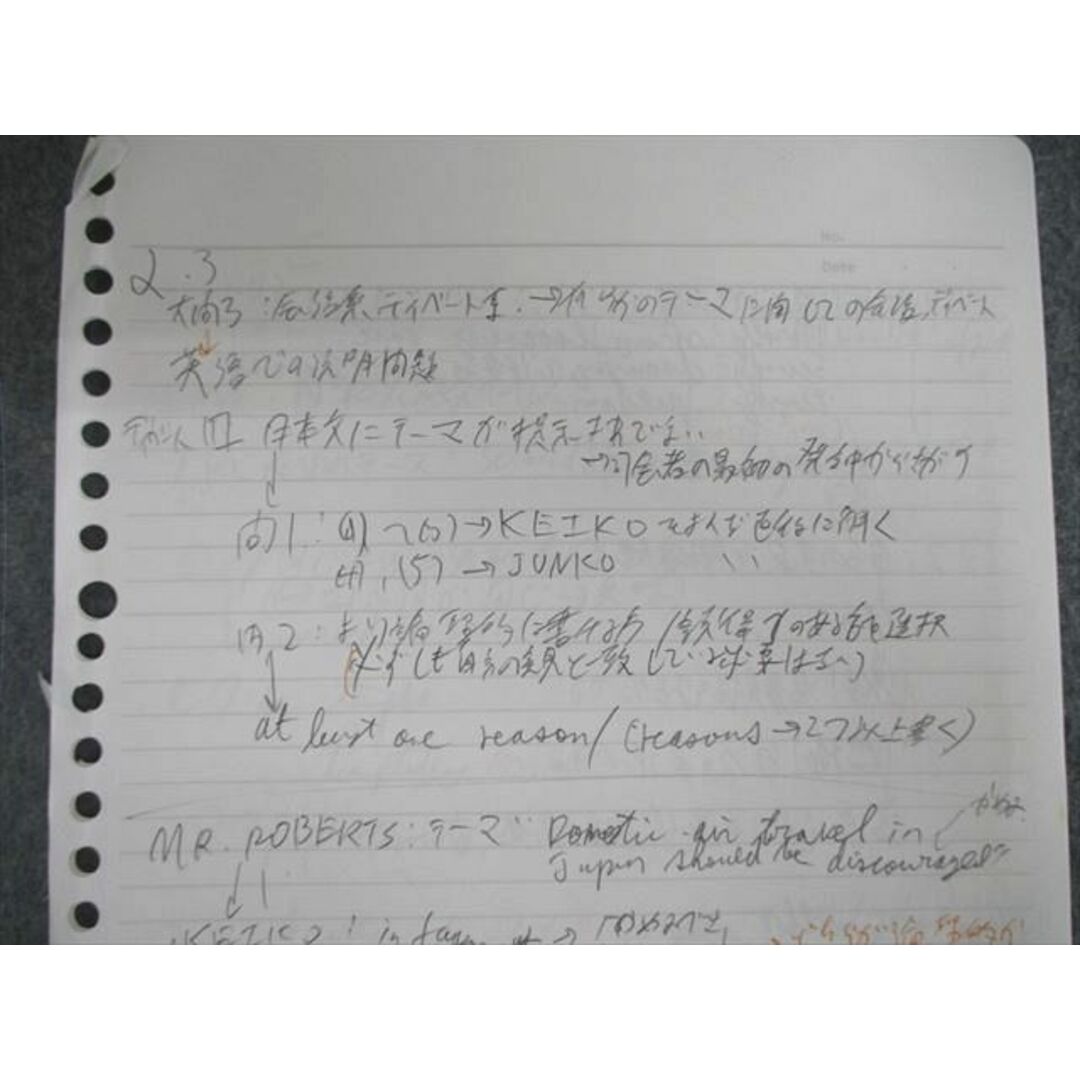 No.
Date
2.3
大問3:会話系、ディベート系→何らかのテーマに関しての会話、ディベート
英語での説明問題
ポイント 1 日本文にテーマが提示されている
→司会者の最初の発言から
問1: (1)~(3)→KEIKOを読んだ直後に解く
(4), (5)→JUNKO 〃
問2:より論理的に書ける方/説得力のある方を選択
(必ずしも自分の意見と一致している必要はない)
at least one reason/(reasons→2つ以上書く)
MR. ROBERTS:テーマ" Domestic air travel in
Japan should be discouraged"
KEIKO: in favor of →